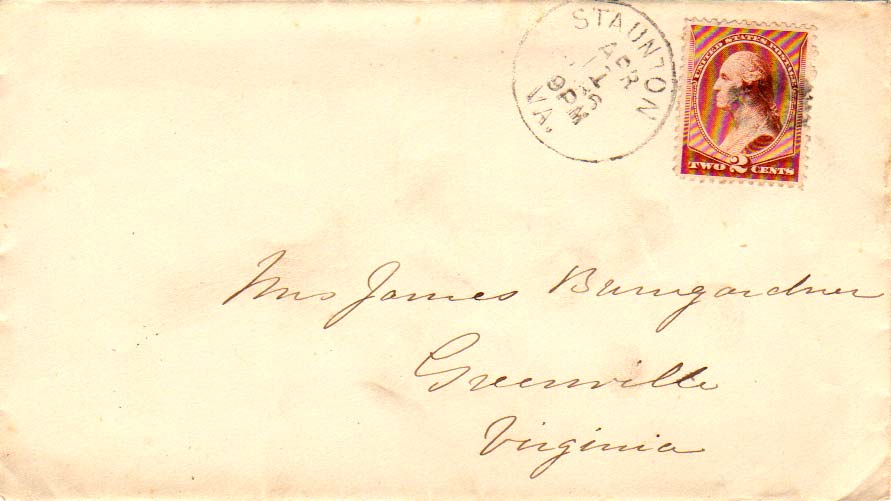 STAUNTON
APR
11
86
9PM
VA.
UNITED STATES POSTAGE
TWO 2 CENTS
Mrs James Bumgardner
Greenville
Virginia